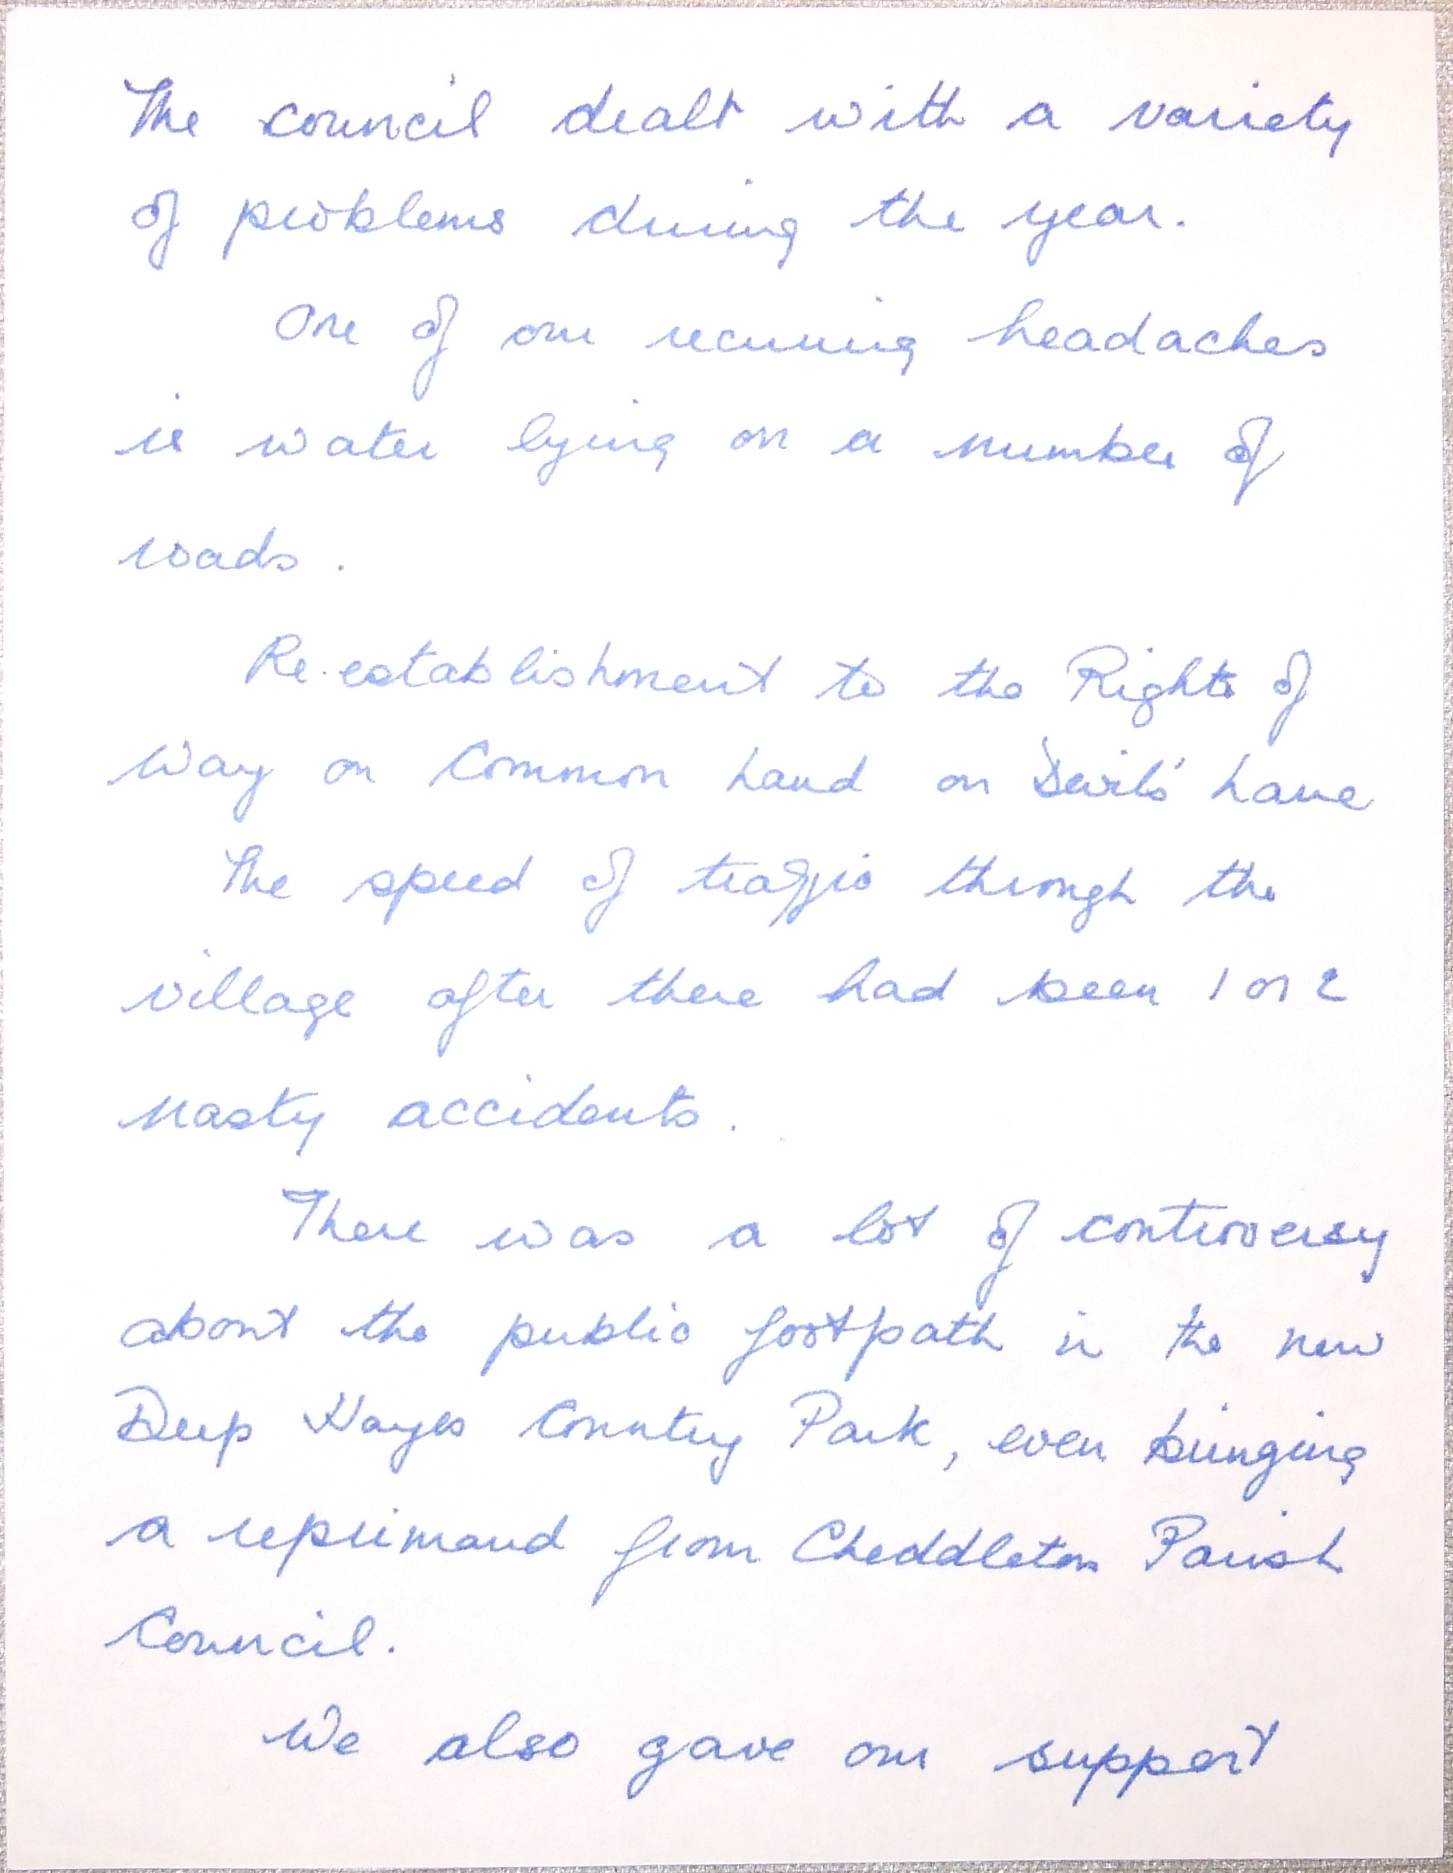 The council dealt with a variety
of problems during the year.
One of our recurring headaches
is water lying on a number of
roads.
Re-establishment to the Rights of
Way on Common Land on Devils' Lane
The speed of traffic through the
village after there had been 1 or 2
nasty accidents.
There was a lot of controversy
about the public footpath in the new
Deep Hayes Country Park, even bringing
a reprimand from Cheddleton Parish
Council.
We also gave our support